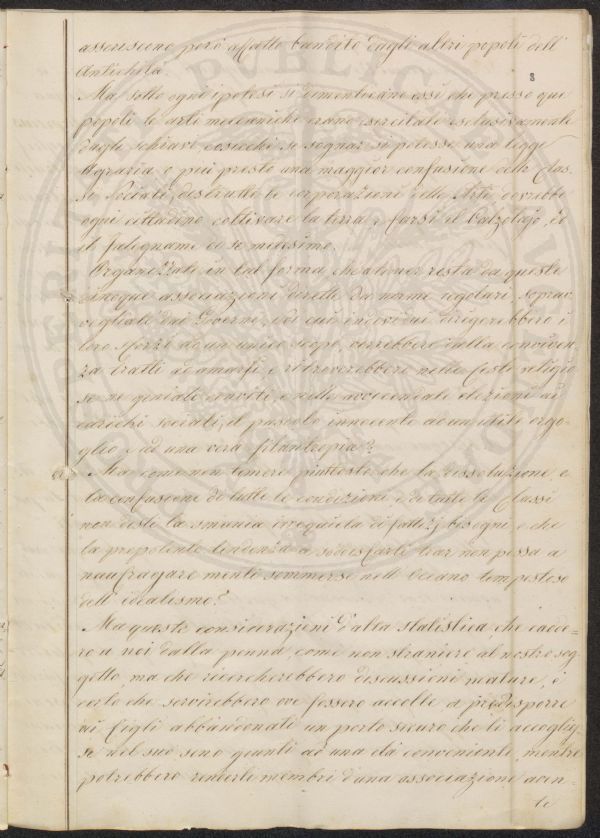 asseriscono però affatto bandito dagli altri popoli dell'
Antichità
8
Ma sotto ogni ipotesi si dimenticano essi che presso que
popoli le arti meccaniche erano esercitate esclusivamente
dagli schiavi cosicchè se sognar si potesse una legge
Agraria o più presto una maggior confusione delle Clas=
se Sociali, destrutte le corporazioni delle Arti, dovrebbe
ogni cittadino coltivare la terra, e farsi il Calzolajo, ed
il Falegname da se medesimo.
Organizzate in tal forma, che almen resta da queste
cinque associazioni dirette da norme regolari, soprav=
vegliate dai Governi, i di cui individui dirigerebbero i
loro sforzi ad un unico scopo, verrebbero dalla conviven=
za tratti ad amarsi, e ritroverebbero nelle feste religio
se ne geniali conviti, e nelle avvicendate elezioni ai
carichi sociali, il pascolo innocente ad un utile orgo=
glio, e ad una vera filantropia?
Ma come non temere piuttosto che la dissoluzione, e
la confusione di tutte le condizioni e di tutte le Classi
non desti la smania irrequieta di fattizj bisogni e che
la prepotente tendenza a soddisfarli trar non possa a
naufragare menti sommerse nell'Oceano tempestoso
dell'idealismo?
Ma queste considerazioni d'alta statistica che cadde=
ro a noi dalla penna, come non straniere al nostro sog=
getto, ma che ricercherebbero discussioni mature, è
certo che servirebbero ove fossero accolte a predisporre
ai figli abbandonati un porto sicuro che li accoglies
se nel suo seno giunti ad una età conveniente, mentre
potrebbero renderli membri d'una associazione aven=
te